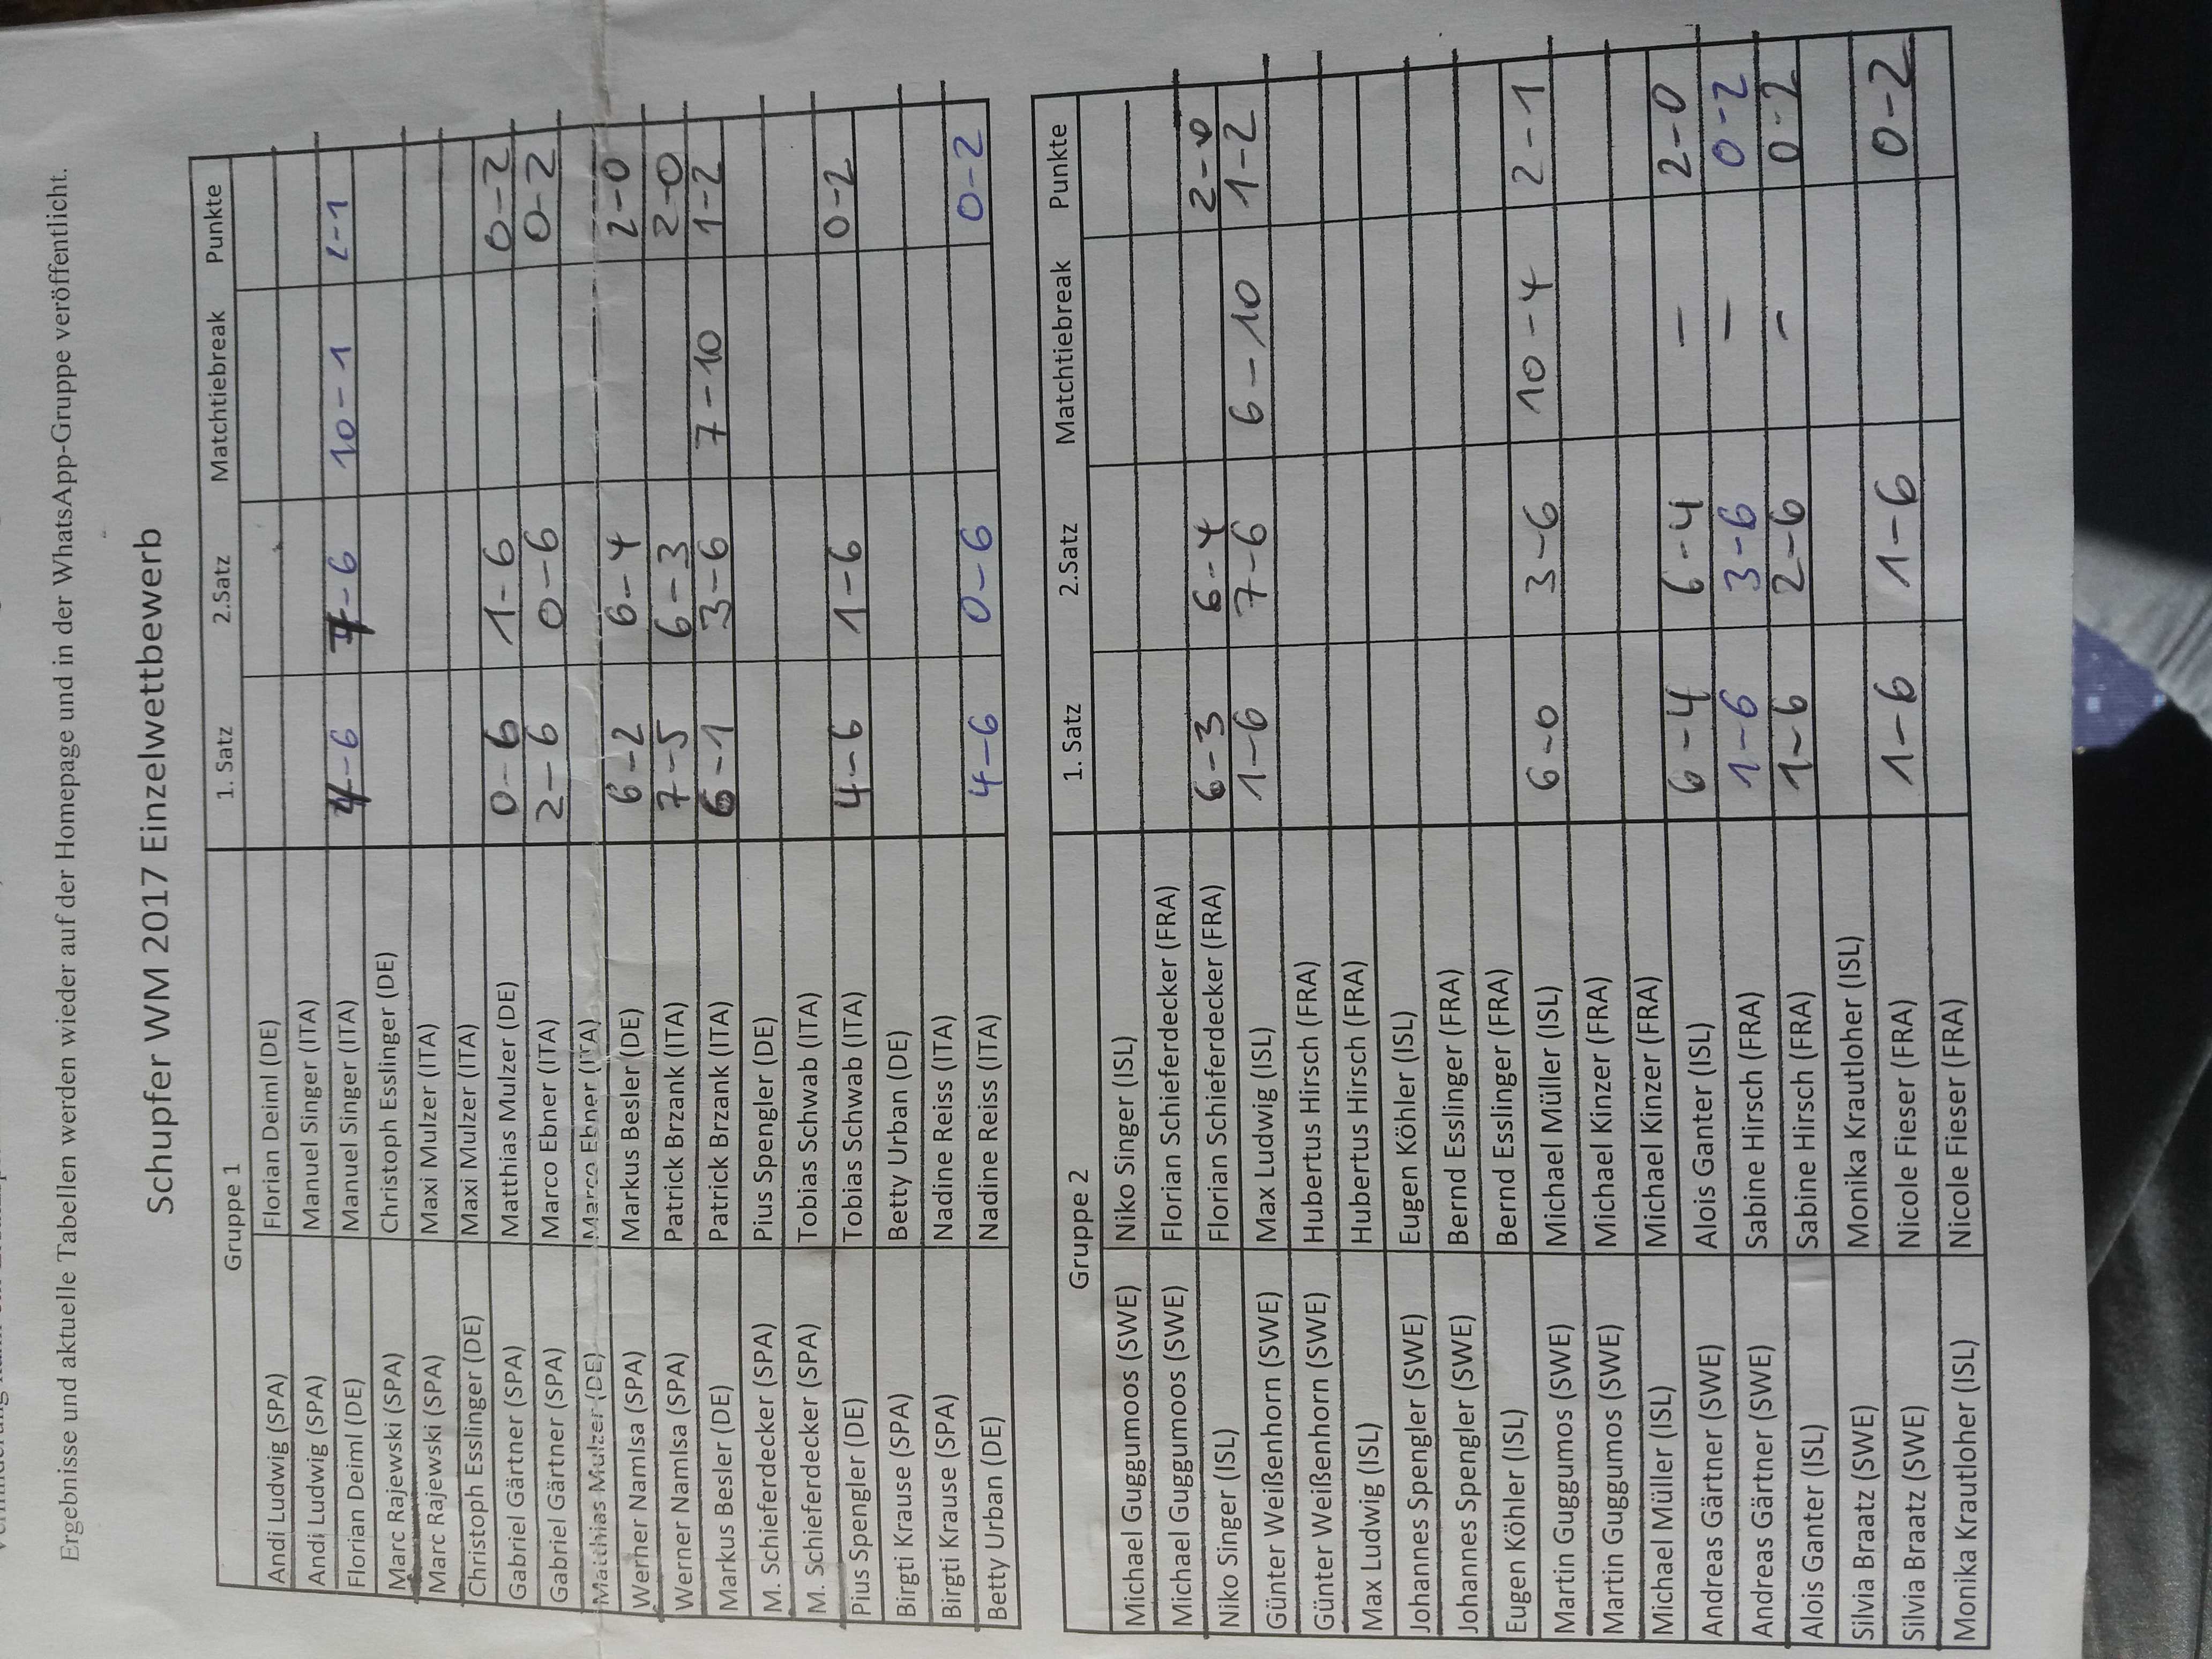 Ergebnisse und aktuelle Tabellen werden wieder auf der Homepage und in der WhatsApp-Gruppe veröffentlicht.
Schupfer WM 2017 Einzelwettbewerb
Gruppe 1 1. Satz 2.Satz Matchtiebreak Punkte
Andi Ludwig (SPA) Florian Deiml (DE)
Andi Ludwig (SPA) Manuel Singer (ITA)
Florian Deiml (DE) Manuel Singer (ITA) 4-6 7-6 10-1 2-1
Marc Rajewski (SPA) Christoph Esslinger (DE)
Marc Rajewski (SPA) Maxi Mulzer (ITA)
Christoph Esslinger (DE) Maxi Mulzer (ITA)
Gabriel Gärtner (SPA) Matthias Mulzer (DE) 0-6 1-6 0-2
Gabriel Gärtner (SPA) Marco Ebner (ITA) 2-6 0-6 0-2
Matthias Mulzer (DE) Marco Ebner (ITA)
Werner Namlsa (SPA) Markus Besler (DE) 6-2 6-4 2-0
Werner Namlsa (SPA) Patrick Brzank (ITA) 7-5 6-3 2-0
Markus Besler (DE) Patrick Brzank (ITA) 6-1 3-6 7-10 1-2
M. Schieferdecker (SPA) Pius Spengler (DE)
M. Schieferdecker (SPA) Tobias Schwab (ITA)
Pius Spengler (DE) Tobias Schwab (ITA) 4-6 1-6 0-2
Birgti Krause (SPA) Betty Urban (DE)
Birgti Krause (SPA) Nadine Reiss (ITA)
Betty Urban (DE) Nadine Reiss (ITA) 4-6 0-6 0-2
Gruppe 2 1. Satz 2.Satz Matchtiebreak Punkte
Michael Guggumoos (SWE) Niko Singer (ISL)
Michael Guggumoos (SWE) Florian Schieferdecker (FRA)
Niko Singer (ISL) Florian Schieferdecker (FRA) 6-3 6-4 2-0
Günter Weißenhorn (SWE) Max Ludwig (ISL) 1-6 7-6 6-10 1-2
Günter Weißenhorn (SWE) Hubertus Hirsch (FRA)
Max Ludwig (ISL) Hubertus Hirsch (FRA)
Johannes Spengler (SWE) Eugen Köhler (ISL)
Johannes Spengler (SWE) Bernd Esslinger (FRA)
Eugen Köhler (ISL) Bernd Esslinger (FRA)
Martin Guggumos (SWE) Michael Müller (ISL) 6-0 3-6 10-4 2-1
Martin Guggumos (SWE) Michael Kinzer (FRA)
Michael Müller (ISL) Michael Kinzer (FRA)
Andreas Gärtner (SWE) Alois Ganter (ISL) 6-4 6-4 – 2-0
Andreas Gärtner (SWE) Sabine Hirsch (FRA) 1-6 3-6 – 0-2
Alois Ganter (ISL) Sabine Hirsch (FRA) 1-6 2-6 – 0-2
Silvia Braatz (SWE) Monika Krautloher (ISL)
Silvia Braatz (SWE) Nicole Fieser (FRA) 1-6 1-6 0-2
Monika Krautloher (ISL) Nicole Fieser (FRA)